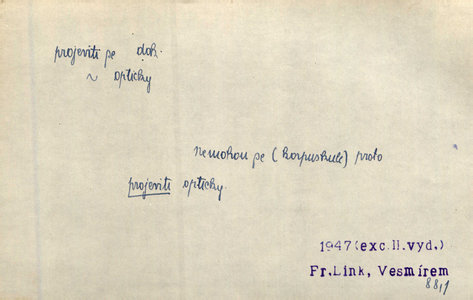 projeviti se dok.
~ opticky
nemohou se (korpuskule) proto
projeviti opticky.
1947(exc.II.vyd.)
Fr.Link, Vesmírem
88,1